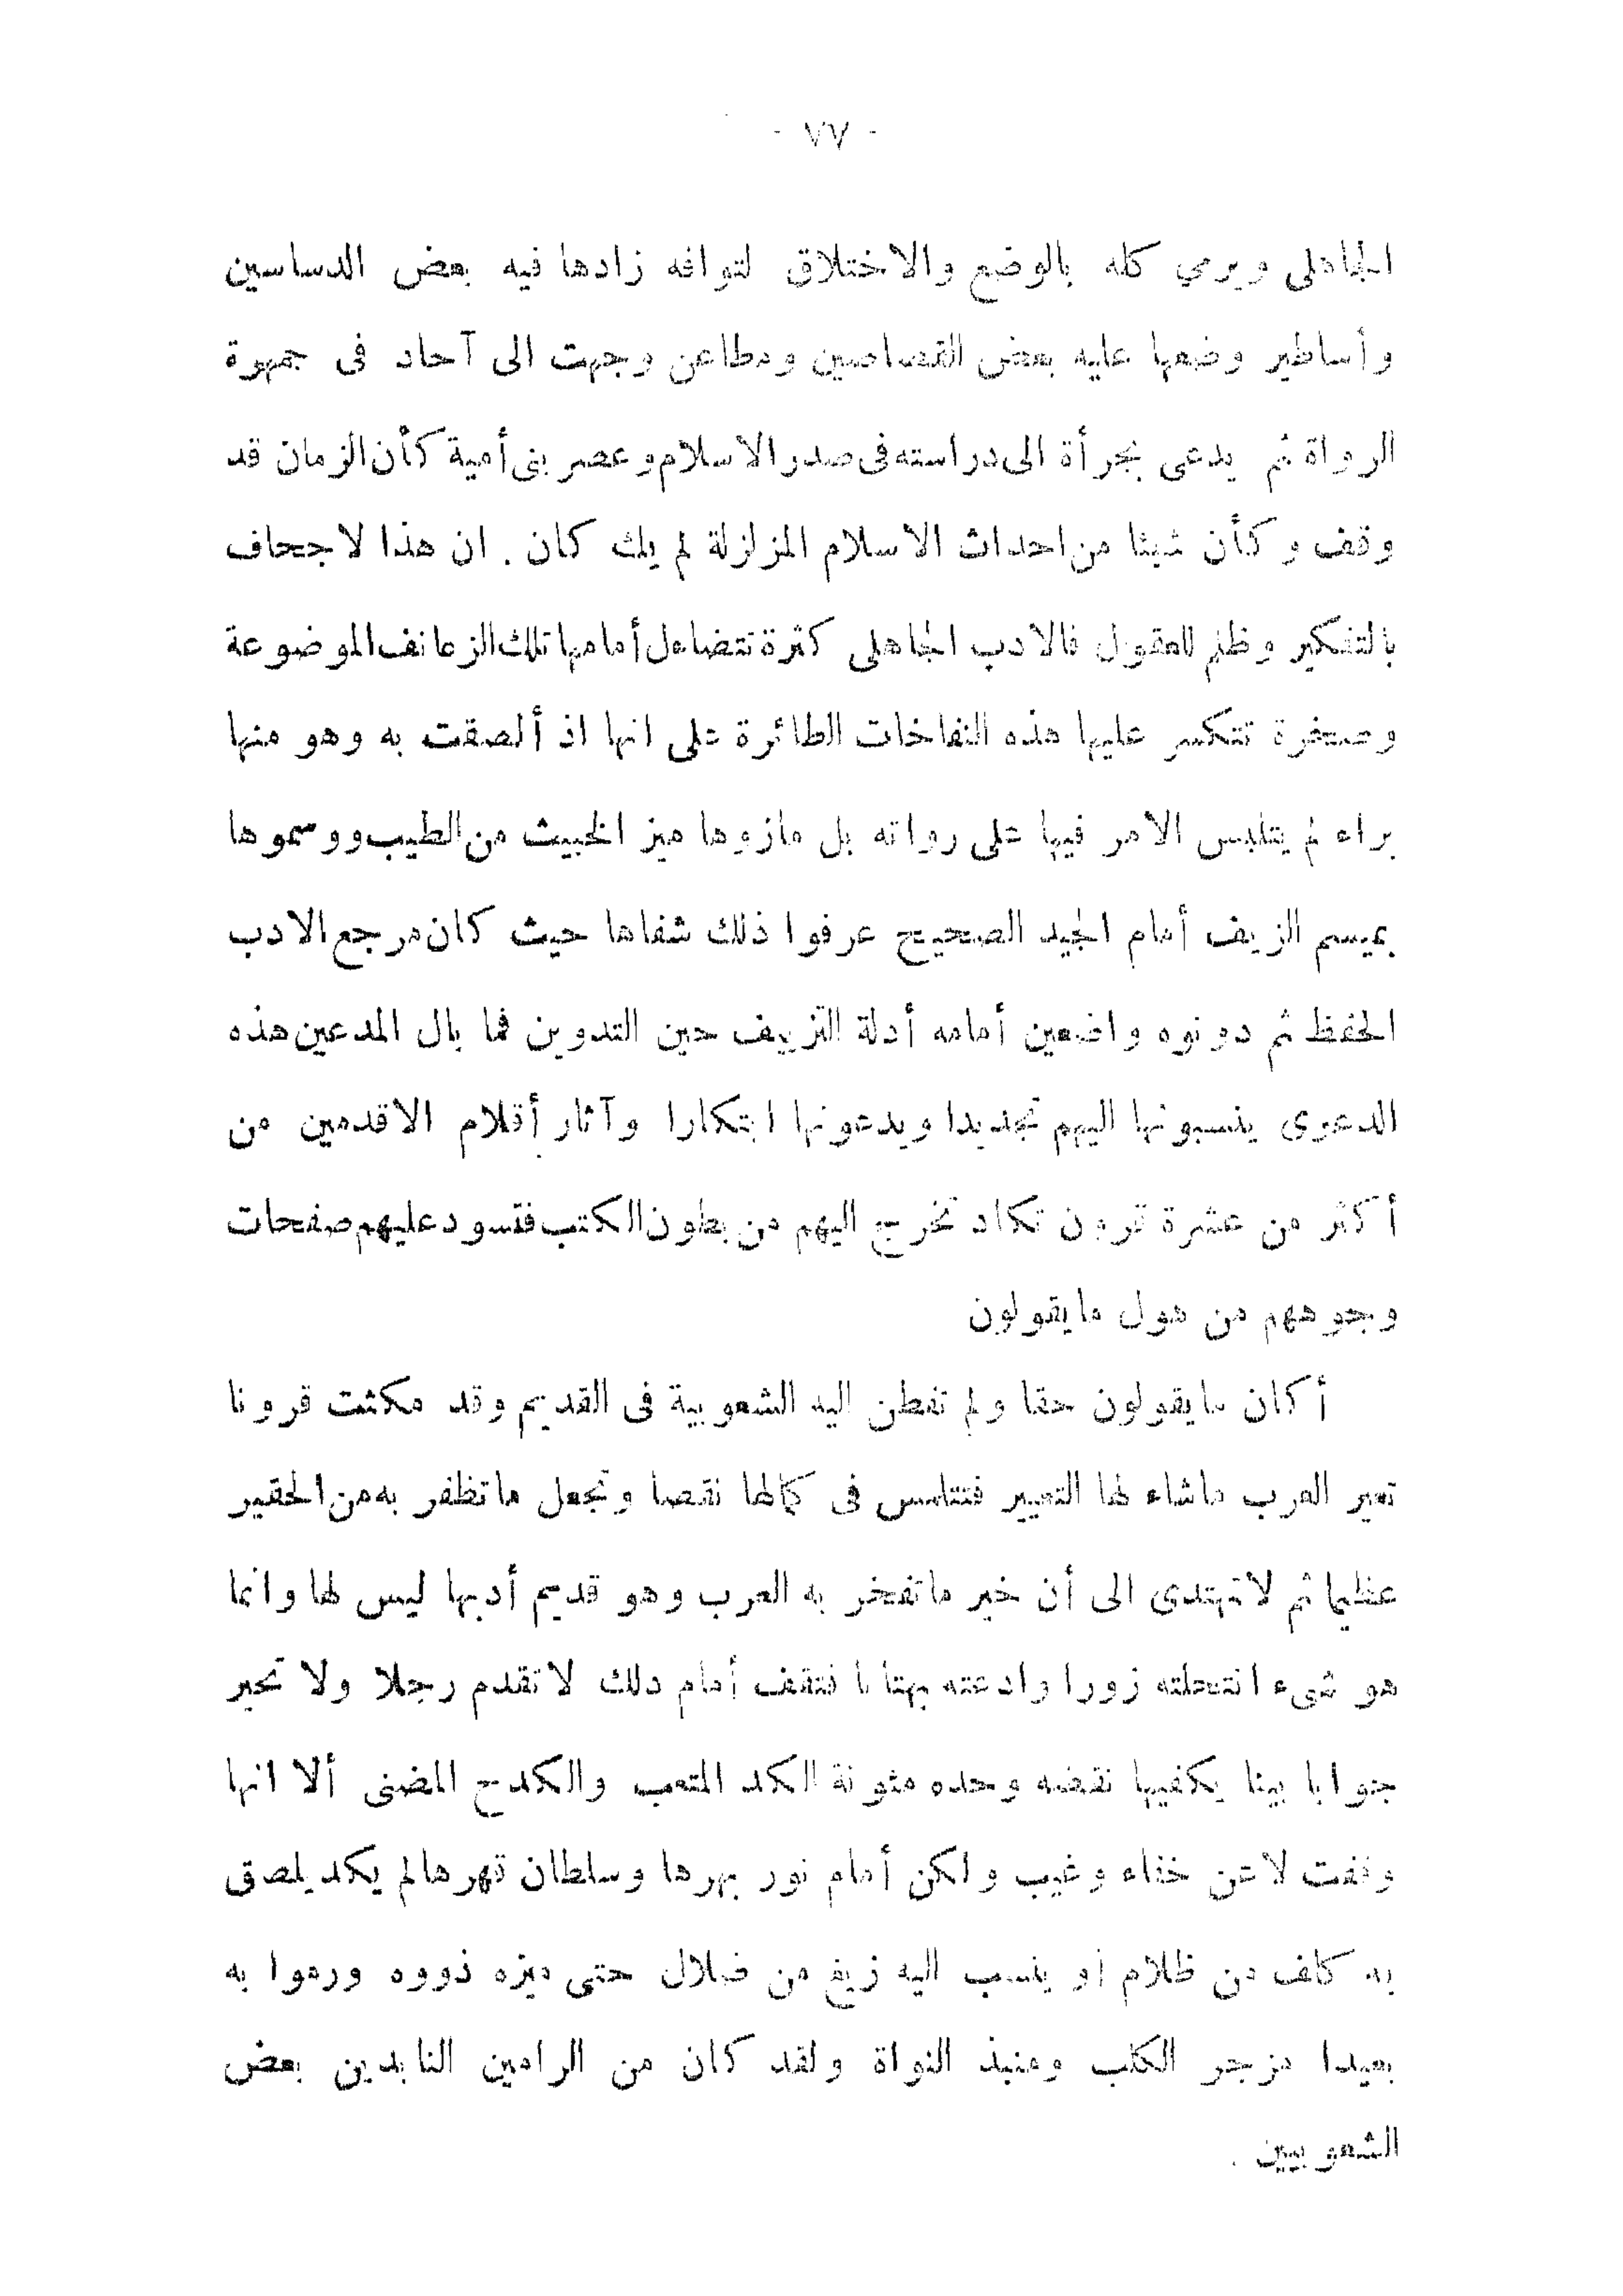 - ٧٧ -
الجاهلى ويرمي كله بالوضع والاختلاق لتوافه زادها فيه بعض الدساسين
وأساطير وضعها عليه بعض القصاصين ومطاعن وجهت الى آحاد فى جمهرة
الرواة ثم يدعى بجرأة الى دراسته فى صدر الاسلام وعصر بنى أمية كأن الزمان قد
وقف وكأن شيئا من احداث الاسلام المزلزلة لم يك كان . ان هذا لاجحاف
بالتفكير وظلم للعقول فالادب الجاهلى كثرة تتضاءل أمامها تلك الزعانف الموضوعة
وصخرة تتكسر عليها هذه النفاخات الطائرة على انها اذ ألصقت به وهو منها
براء لم يتلبس الامر فيها على رواته بل مازوها ميز الخبيث من الطيب ووسموها
بميسم الزيف أمام الجيد الصحيح عرفوا ذلك شفاها حيث كان مرجع الادب
الحفظ ثم دونوه واضعين أمامه أدلة التزييف حين التدوين فما بال المدعين هذه
الدعوى ينسبونها اليهم تجديدا ويدعونها ابتكارا وآثار أقلام الاقدمين من
أكثر من عشرة قرون تكاد تخرج اليهم من بطون الكتب فتسود عليهم صفحات
وجوههم من هول مايقولون
أكان مايقولون حقا ولم تفطن اليه الشعوبية فى القديم وقد مكثت قرونا
تعير العرب ماشاء لها التعيير فتتلمس فى كمالها نقصا وتجعل ماتظفر به من الحقير
عظيما ثم لاتهتدى الى أن خير ماتفخر به العرب وهو قديم أدبها ليس لها وانما
هو شىء انتحلته زورا وادعته بهتانا فتقف أمام ذلك لاتقدم رجلا ولا تحير
جوابا بينا يكفيها نقضه وحده مئونة الكد المتعب والكدح المضنى ألا انها
وقفت لا عن خفاء وغيب ولكن أمام نور بهرها وسلطان قهرها لم يكد يلصق
به كلف من ظلام أو ينسب اليه زيغ من ضلال حتى ميزه ذووه ورموا به
بعيدا مزجر الكلب ومنبذ النواة ولقد كان من الرامين النابذين بعض
الشعوبيين .